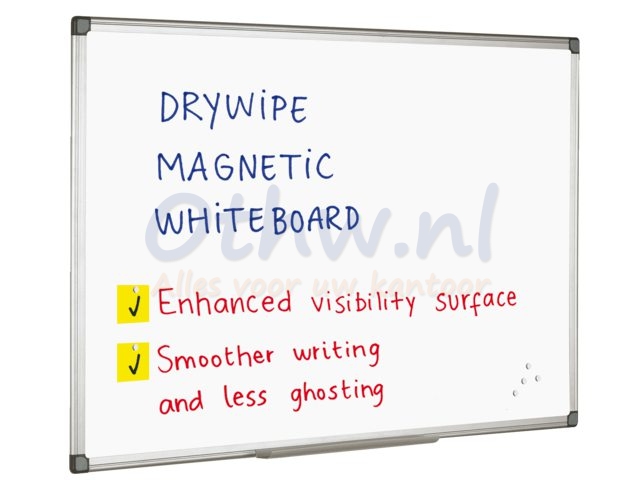 DRYWiPE
MAGNETiC
WHiTEBOARD
Othw.nl
Alles voor uw kantoor
✓ Enhanced visibility surface
✓ Smoother writing
and less ghosting